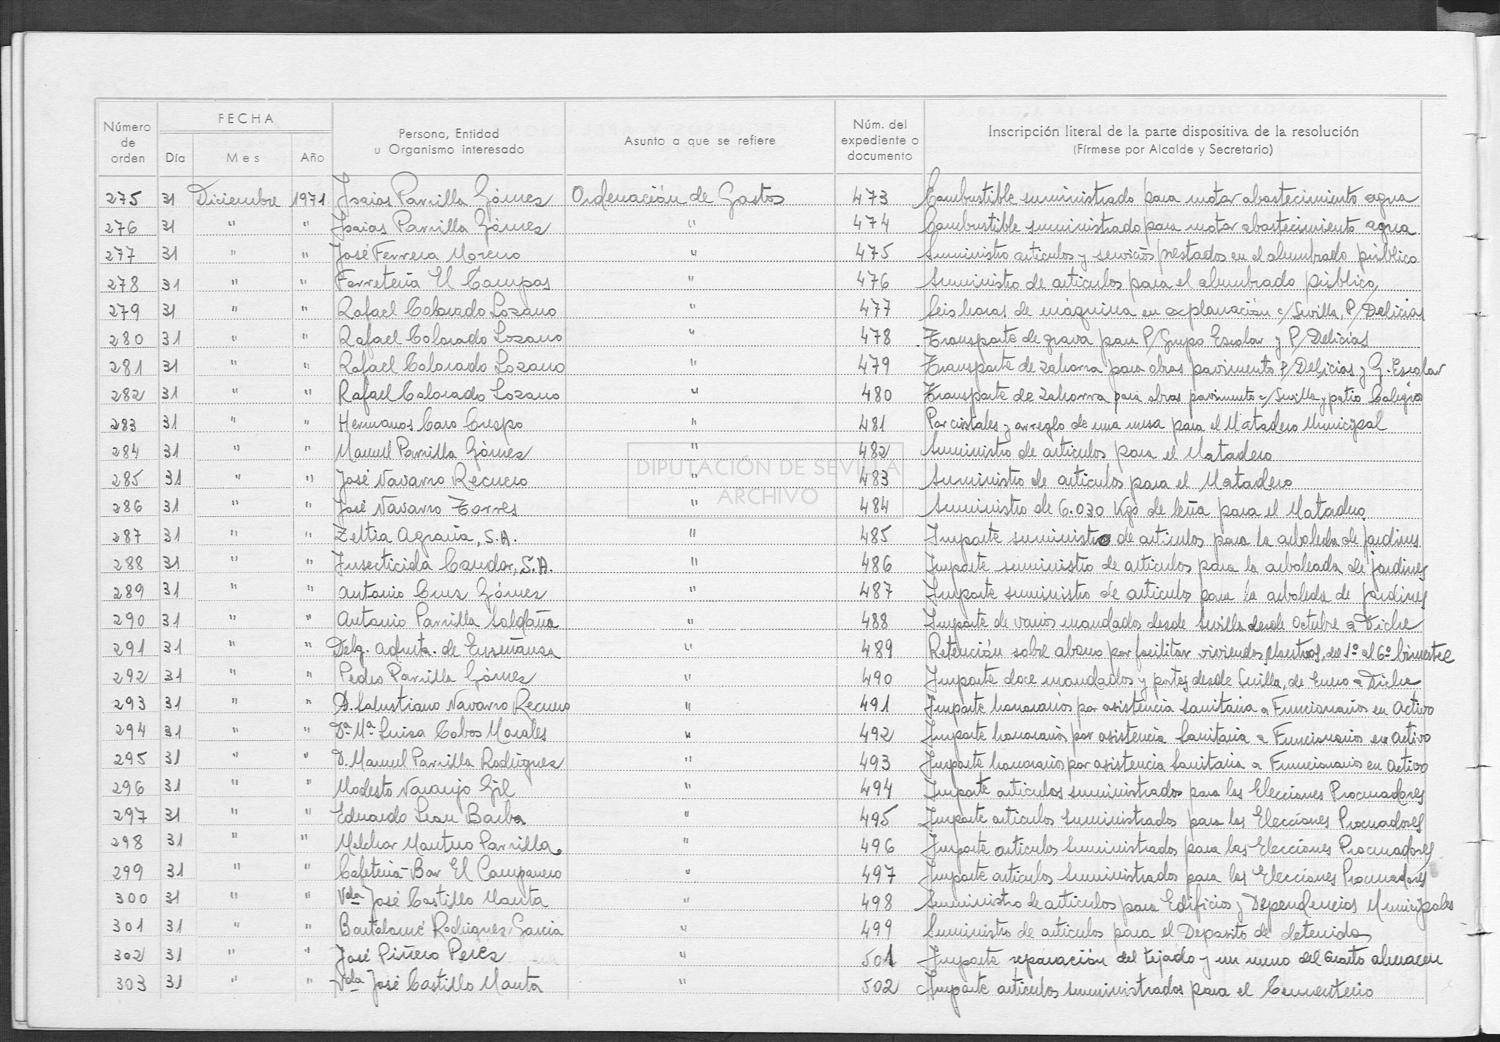 Número de orden | FECHA | Persona, Entidad u Organismo interesado | Asunto a que se refiere | Núm. del expediente o documento | Inscripción literal de la parte dispositiva de la resolución (Fírmese por Alcalde y Secretario)
Día | Mes | Año
275 31 Diciembre 1971 Isaias Parrilla Gómez Ordenación de Gastos 473 Combustible suministrado para motor abastecimiento agua
276 31 " " Isaias Parrilla Gómez " 474 Combustible suministrado para motor abastecimiento agua.
277 31 " " José Ferrera Moreno " 475 Suministro artículos y servicios prestados en el alumbrado público
278 31 " " Ferretería El Campas " 476 Suministro de artículos para el alumbrado público,
279 31 " " Rafael Colorado Lozano " 477 Seis horas de máquina en explanación c/ Sevilla, P/ Delicias
280 31 " " Rafael Colorado Lozano " 478 Transporte de grava para P/ Grupo Escolar y P/ Delicias
281 31 " " Rafael Colorado Lozano " 479 Transporte de zahorra para obras pavimento P/ Delicias y G. Escolar
282 31 " " Rafael Colorado Lozano " 480 Transporte de zahorra para obras pavimento c/ Sevilla y patio Colegio
283 31 " " Hermanos Caro Crespo " 481 Por cristales y arreglo de una mesa para el Matadero Municipal
284 31 " " Manuel Parrilla Gómez " 482 Suministro de artículos para el Matadero
DIPUTACIÓN DE SEVILLA
ARCHIVO
285 31 " " José Navarro Recuero " 483 Suministro de artículos para el Matadero
286 31 " " José Navarro Torres " 484 Suministro de 6.030 Kgs de leña para el Matadero,
287 31 " " Zeltia Agraria, S.A. " 485 Importe suministro de artículos para la arboleda de jardines
288 31 " " Insecticida Condor, S.A. " 486 Importe suministro de artículos para la arboleada de jardines
289 31 " " Antonio Cruz Gómez " 487 Importe suministro de artículos para la arboleda de jardines
290 31 " " Antonio Parrilla Saldaña " 488 Importe de varios mandados desde Sevilla desde Octubre a Dicbre
291 31 " " Delg. Admta. de Enseñansa " 489 Retención sobre abono por facilitar viviendas Maestros, del 1º al 6º bimestre
292 31 " " Pedro Parrilla Gómez " 490 Importe doce mandados y portes desde Sevilla, de Enero a Dicbre
293 31 " " D. Salustiano Navarro Recuero " 491 Importe honorarios por asistencia sanitaria a Funcionarios en Activo
294 31 " " Dª Mª Luisa Cobos Morales " 492 Importe honorarios por asistencia Sanitaria a Funcionarios en activo
295 31 " " D. Manuel Parrilla Rodríguez " 493 Importe honorarios por asistencia Sanitaria a Funcionarios en activo
296 31 " " Modesto Naranjo Gil " 494 Importe artículos suministrados para las Elecciones Procuradores
297 31 " " Eduardo Barba " 495 Importe artículos suministrados para las Elecciones Procuradores
298 31 " " Melchor Parrilla " 496 Importe artículos suministrados para las Elecciones Procuradores
299 31 " " Cafetería-Bar El Campanero " 497 Importe artículos suministrados para las Elecciones Procuradores
300 31 " " Vda José Castillo Manta " 498 Suministro de artículos para Edificios y Dependencias Municipales
301 31 " " Bartolomé Rodríguez García " 499 Suministro de artículos para el Deposito de detenidos
302 31 " " José Piñero Perez " 501 Importe reparación del tejado y un muro del cuarto almacen
303 31 " " Vda José Castillo Manta " 502 Importe artículos suministrados para el Cementerio